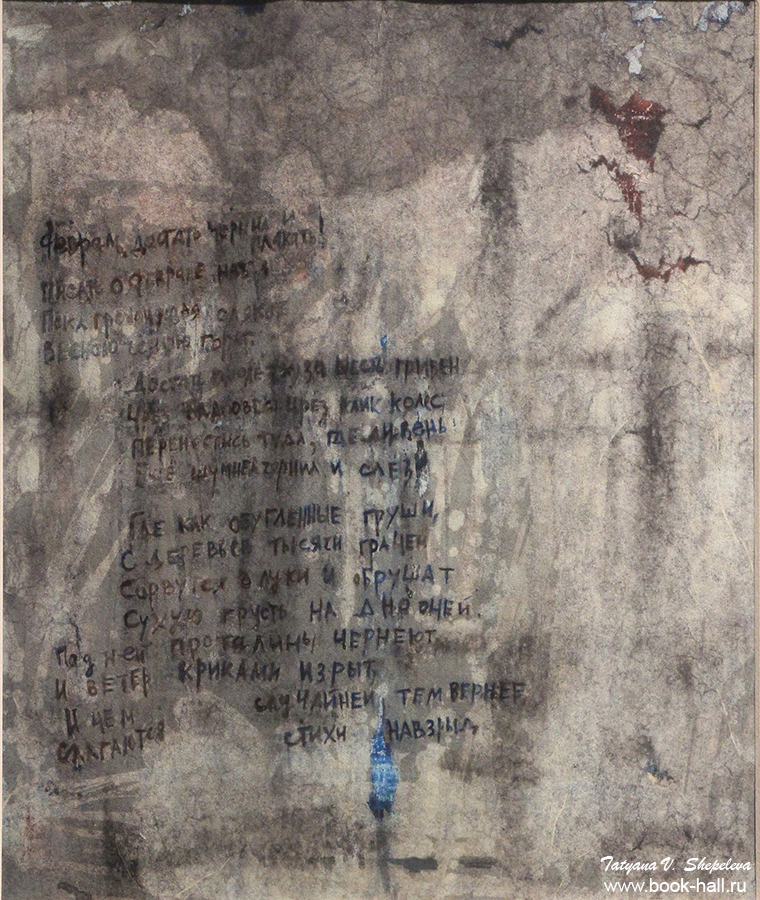 Февраль, достать чернил и
плакать!
Писать о феврале нав
Пока грохочущая слякоть
Весною черною горит.
Достать пролетку за шесть гривен
Чрез благовест чрез клик колес
Перенестись туда, где ливень
Еще шумней чернил и слез
Где как обугленные груши,
С деревьев тысячи грачей
Сорвутся в лужи и обрушат
Сухую грусть на дно очей.
Под ней проталины чернеют
И ветер криками изрыт,
И чем случайней, тем вернее
Слагаются стихи навзрыд
Tatyana V. Shepeleva
www.book-hall.ru